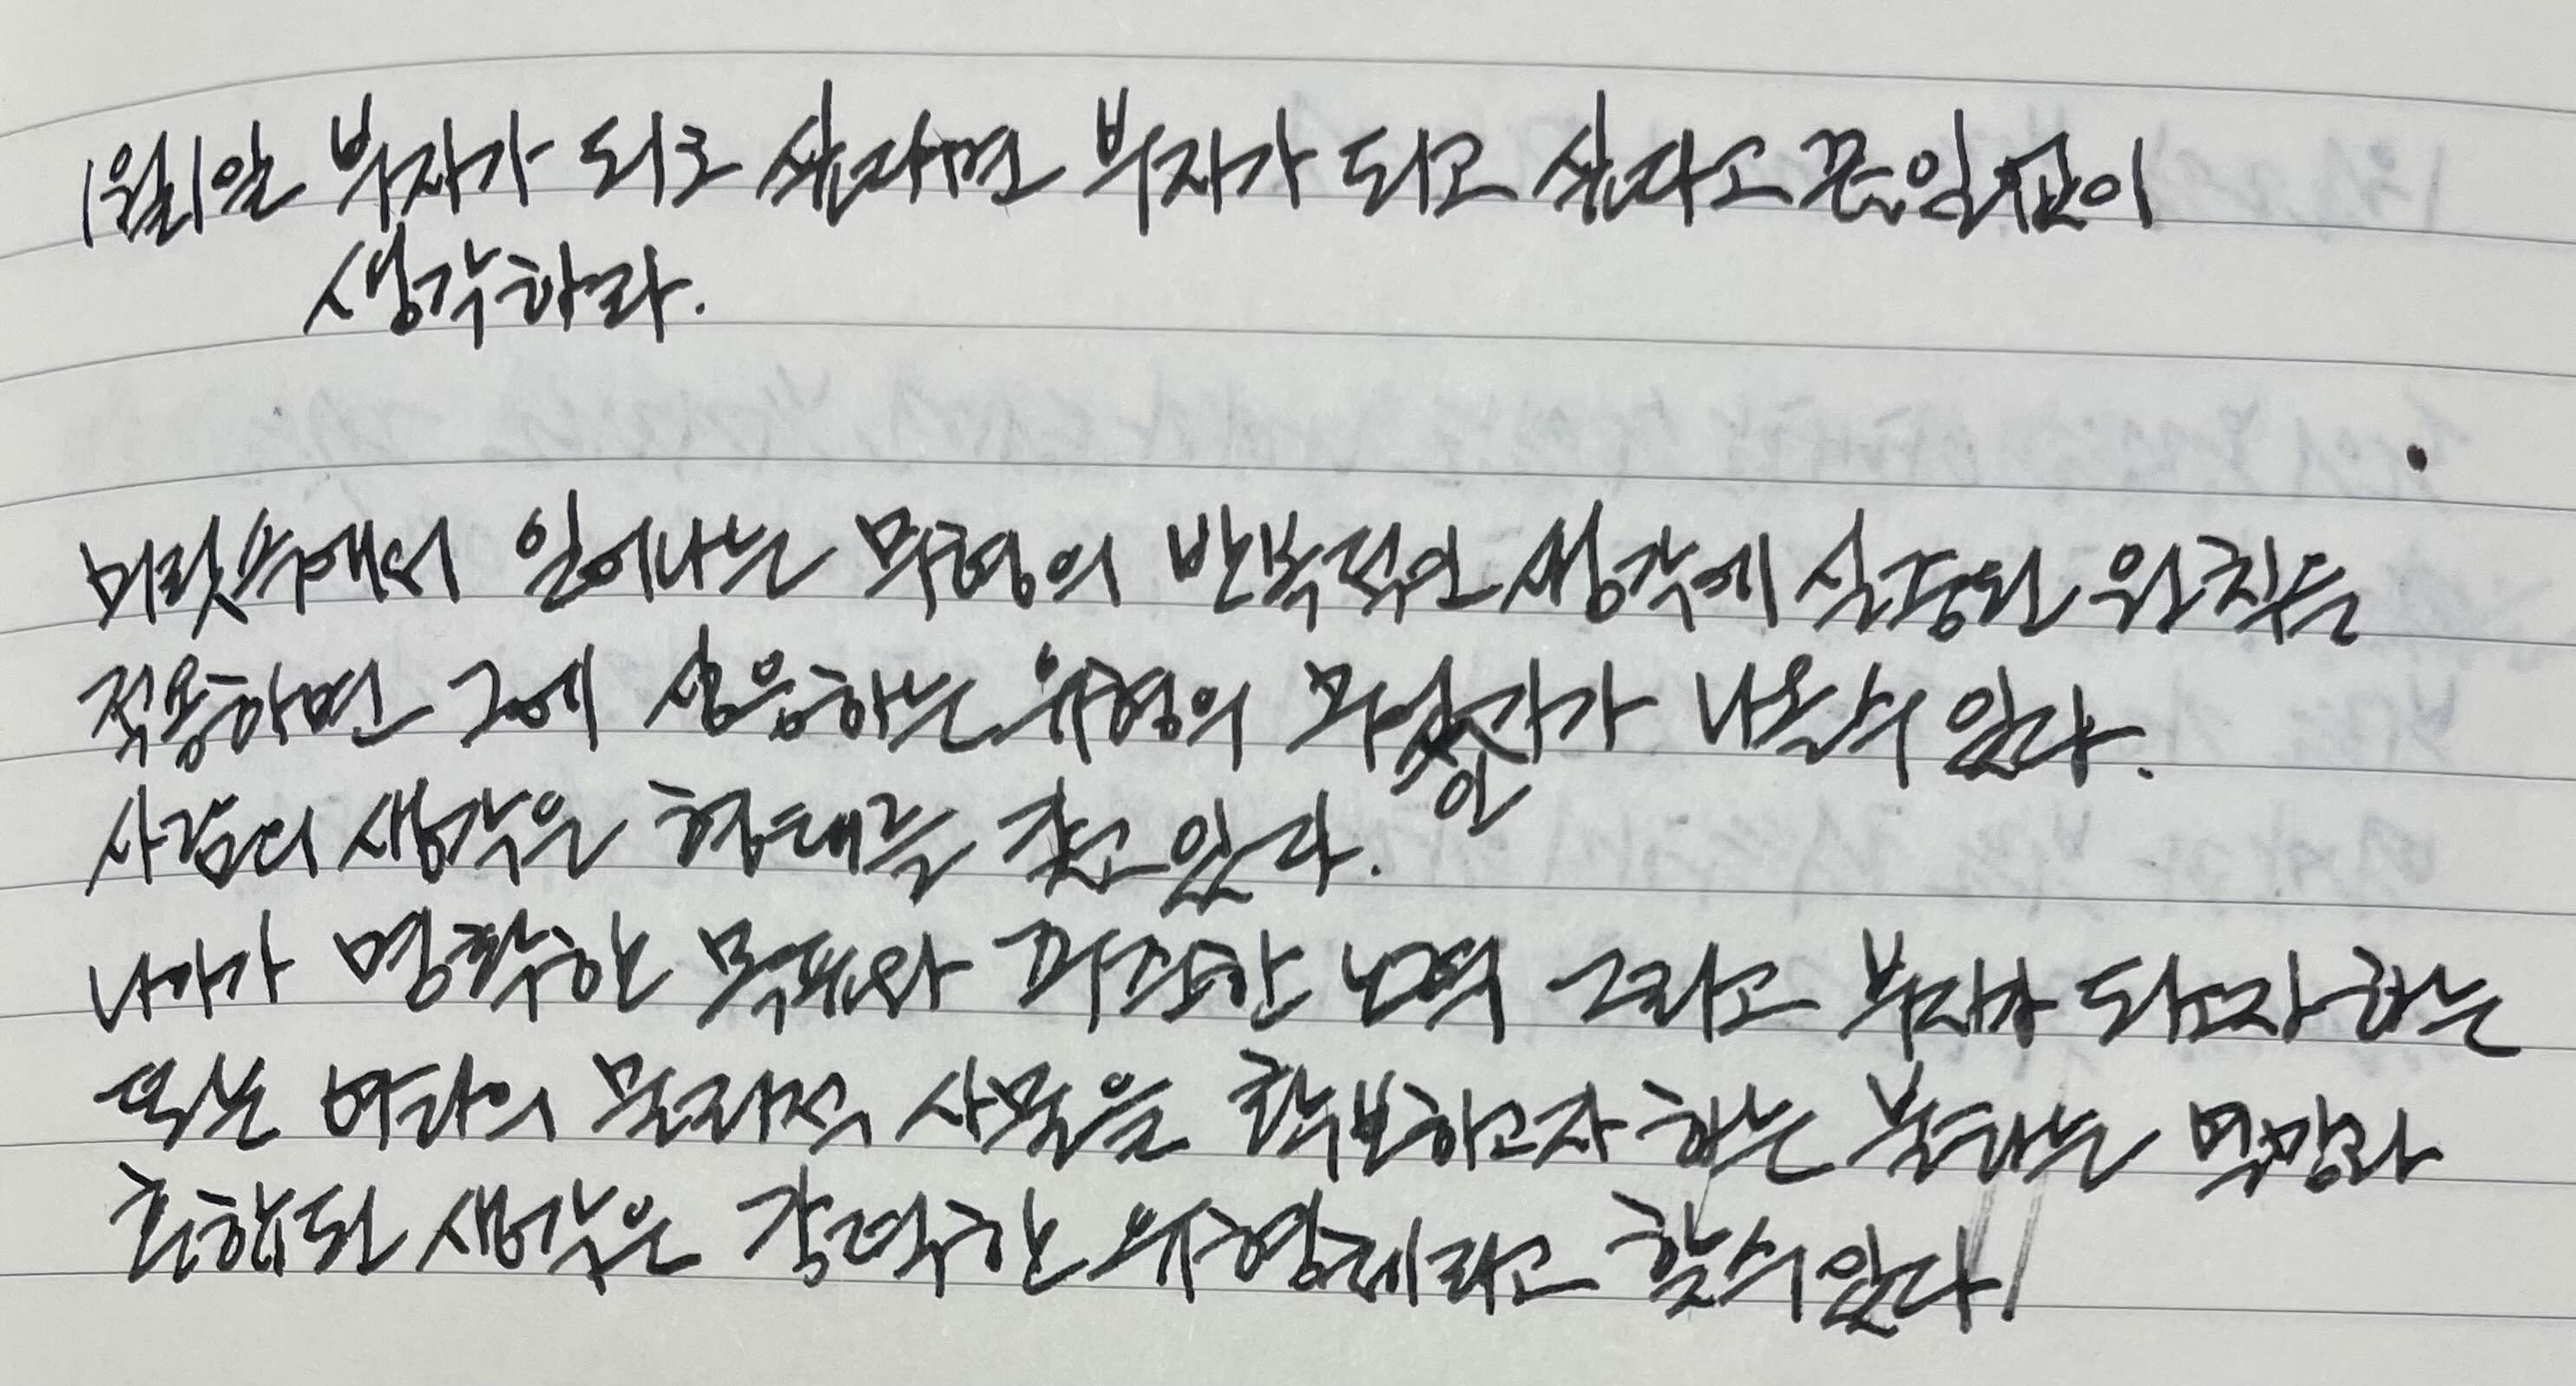 1월1일 부자가 되고 싶다면 부자가 되고 싶다고 끊임없이
생각하라.
머릿속에서 일어나는 무형의 반복적인 생각에 검증된 원칙들을
적용하면 그에 상응하는 유형의 보상가 나올수 있다.
사람의 생각은 형태를 갖고 있다.
나아가 명확한 목표와 꾸준한 노력 그리고 부자가 되고자 하는
혹은 여타의 물리적 사물을 확보하고자 하는 불타는 열망과
혼합된 생각은 강력한 유형체라고 할수 있다!